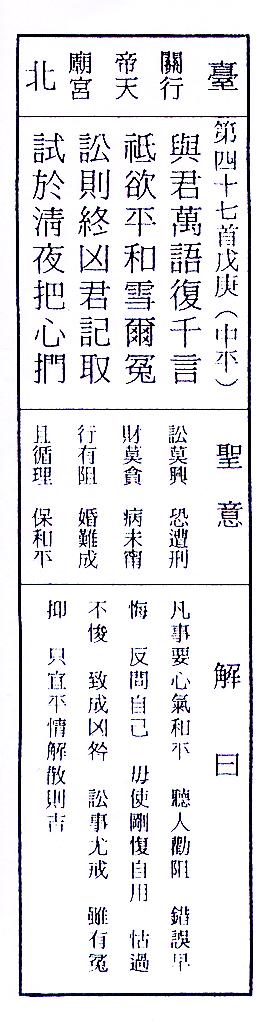 臺北
行天宮
關帝廟
第四十七首戊庚（中平）
與君萬語復千言
祗欲平和雪爾冤
訟則終凶君記取
試於清夜把心捫
聖意
訟莫興　恐遭刑
財莫貪　病未甯
行有阻　婚難成
且循理　保和平
解曰
凡事要心氣和平　聽人勸阻　錯誤早
悔　反問自己　毋使剛愎自用　怙過
不悛　致成凶咎　訟事尤戒　雖有冤
抑　只宜平情解散則吉